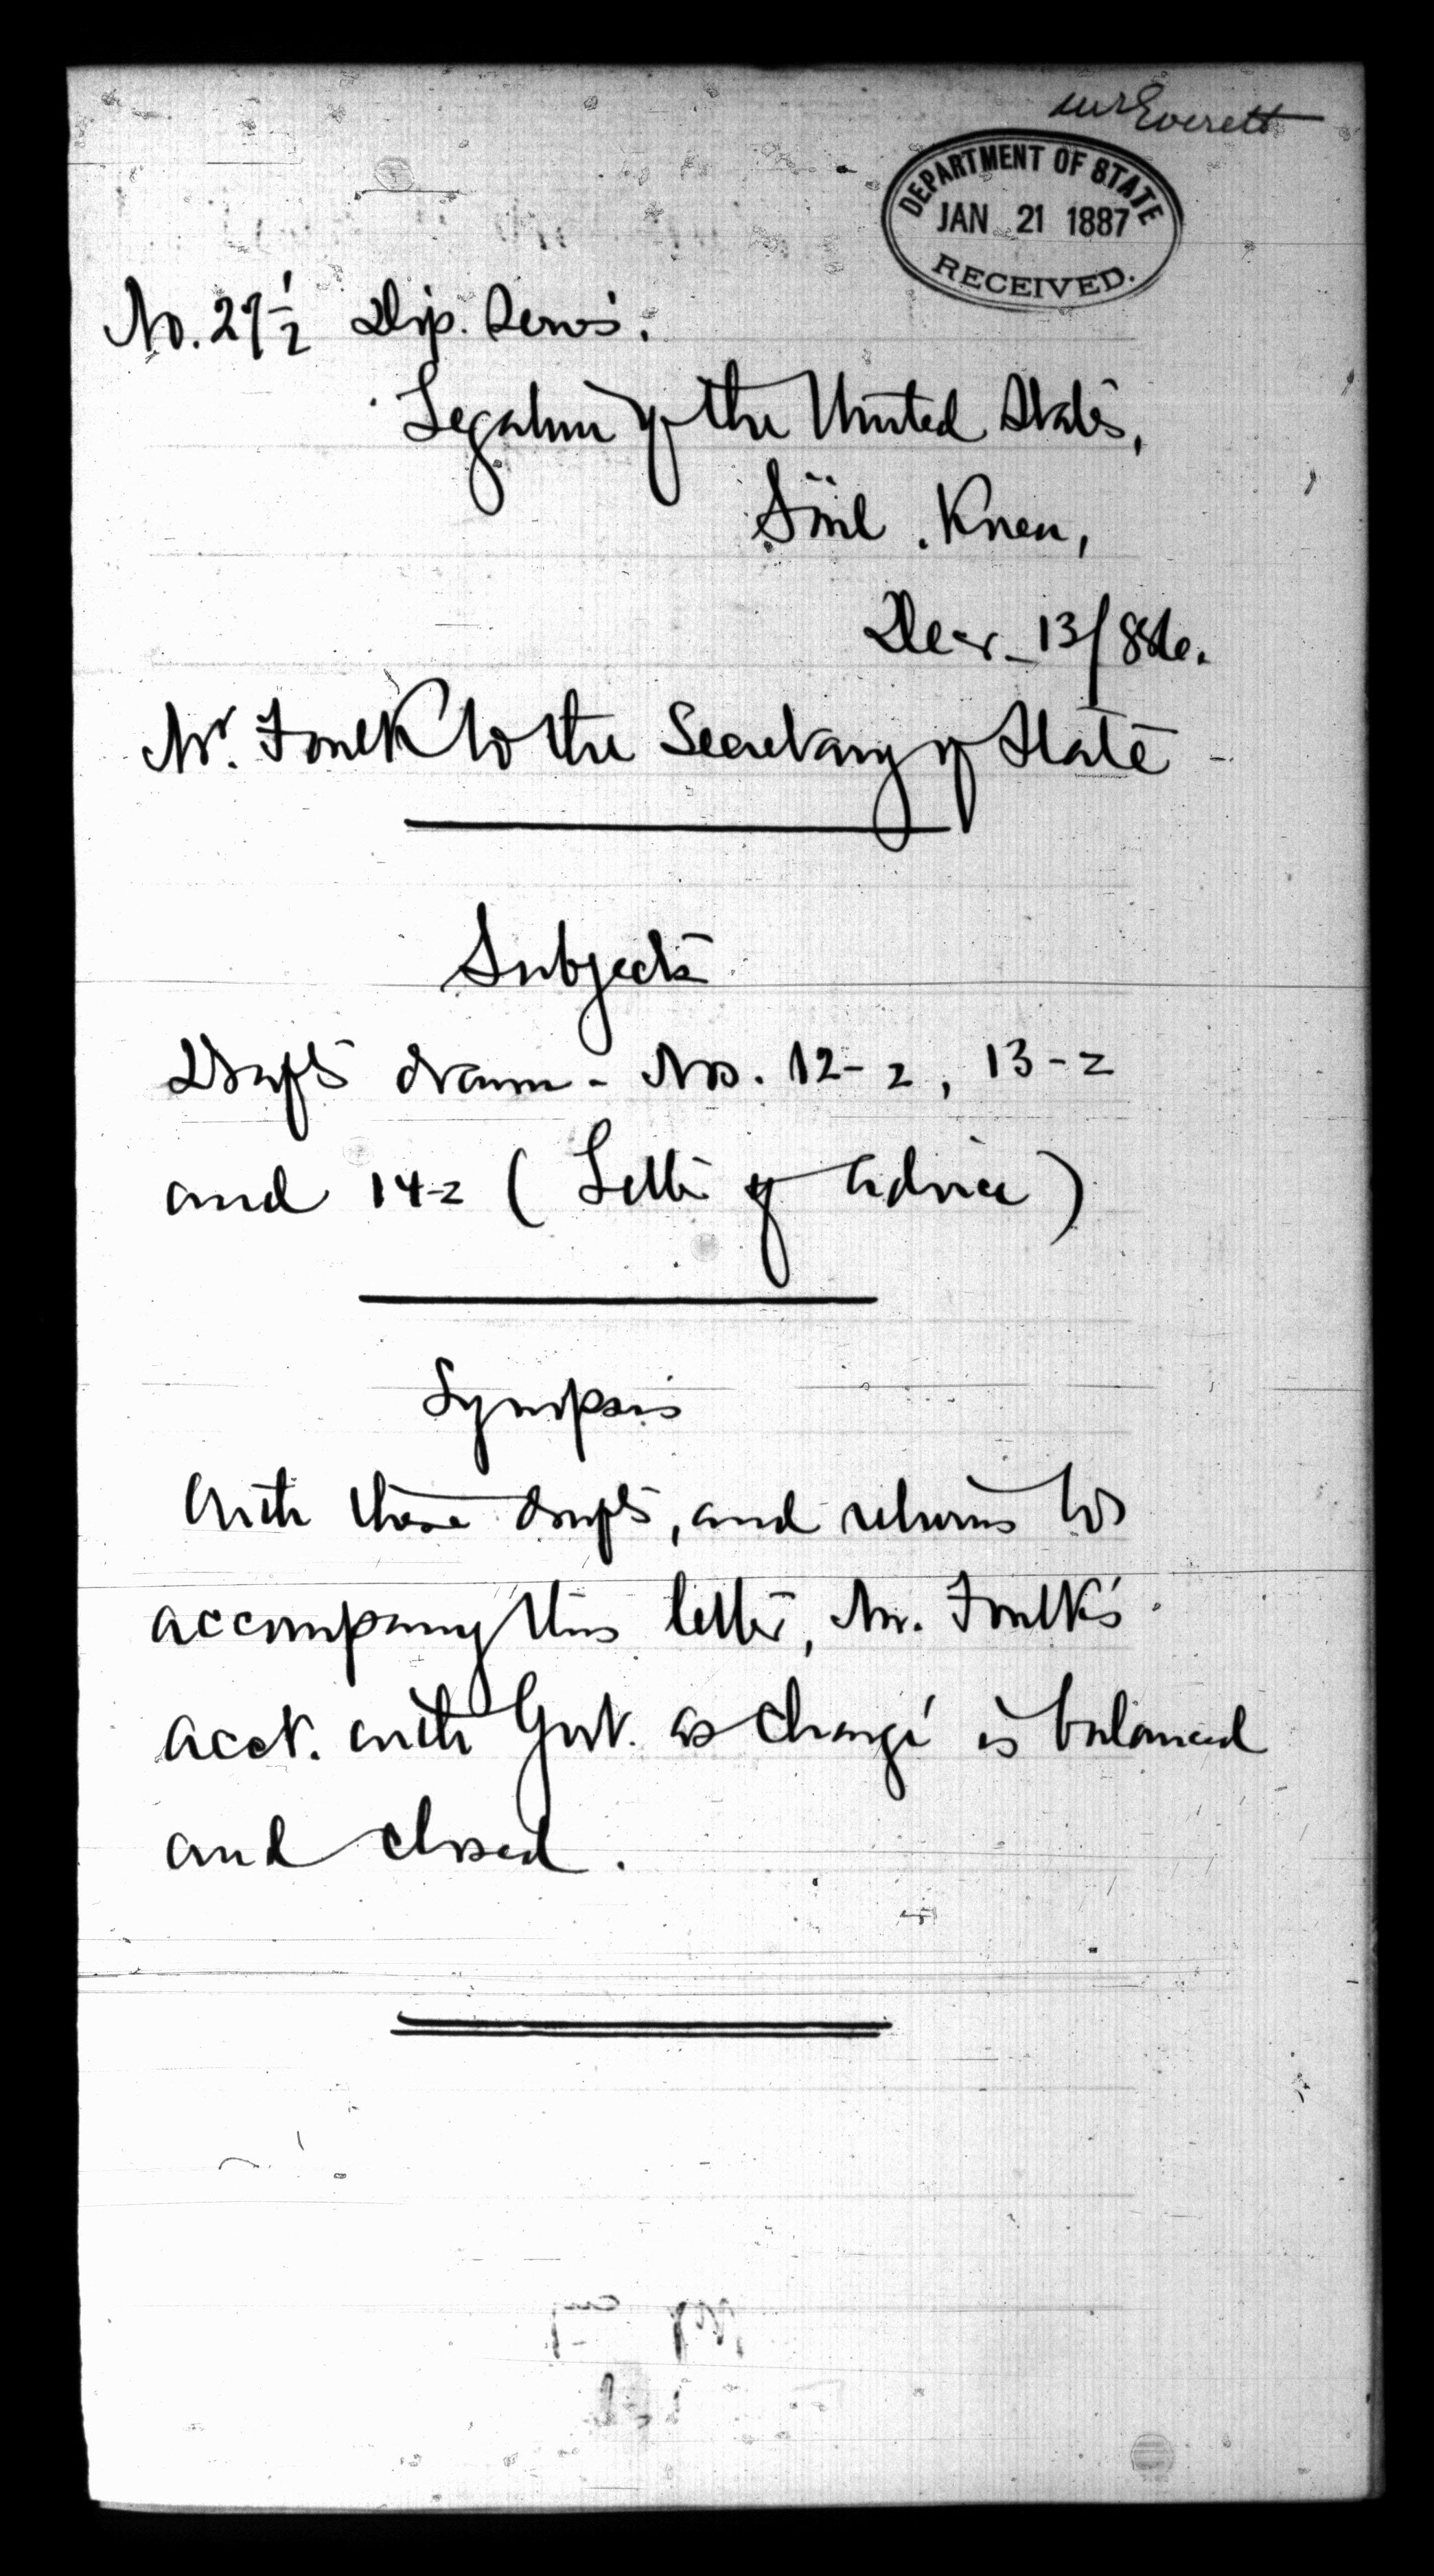 Mr Everett
DEPARTMENT OF STATE
JAN 21 1887
RECEIVED.
No. 29½ Dip. Series.
Legation of the United States,
Söul, Korea,
Decr. 13/886.
Mr. Foulk to the Secretary of State
Subject
Drafts drawn - Nos. 12-2, 13-2
and 14-2 (Letter of Advice)
Synopsis
With these drafts, and returns to
accompany this letter, Mr. Foulk's
acct. with Govt. as Chargé is balanced
and closed.